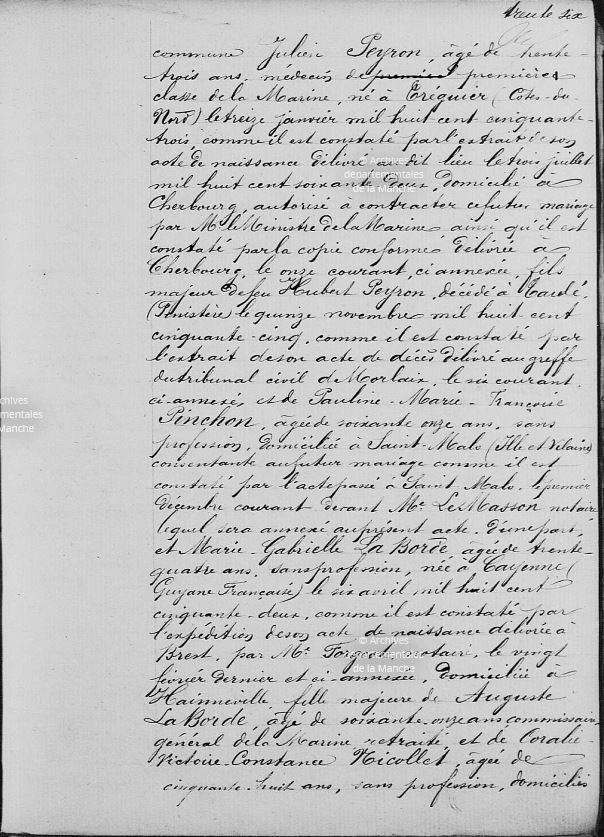 trente six
commune Julien Peyron, âgé de trente-
trois ans, médecin de première première
classe de la Marine, né à Tréguier (Côtes-du-
Nord) le treize janvier mil huit cent cinquante-
trois, comme il est constaté par l'extrait de son
acte de naissance délivré au dit lieu le trois juillet
mil huit cent soixante deux, domicilié à
Cherbourg, autorisé à contracter ce futur mariage
par Mr le Ministre de la Marine ainsi qu'il est
constaté par la copie conforme délivrée à
Cherbourg, le onze courant, ci annexée, fils
majeur de feu Hubert Peyron, décédé à
(Finistère) le quinze novembre mil huit cent
cinquante-cinq, comme il est constaté par
l'extrait de son acte de décès délivré au greffe
du tribunal civil de Morlaix, le six courant,
ci-annexé, et de Pauline-Marie-Françoise
Pinchon, âgée de soixante onze ans, sans
profession, domiciliée à Saint-Malo (Ille et Vilaine)
consentante au futur mariage comme il est
constaté par l'acte passé à Saint Malo, le premier
décembre courant devant Me LeMasson notaire
lequel sera annexé au présent acte. d'une part,
et Marie-Gabrielle La Borde, âgée de trente-
quatre ans, sans profession, née à Cayenne (
Guyane Française) le six avril mil huit cent
cinquante-deux, comme il est constaté par
l'expédition de son acte de naissance délivrée à
Brest, par Me notaire, le vingt
février dernier et ci-annexée, domiciliée à
Hainneville, fille majeure de Auguste
La Borde, âgé de soixante-onze ans, commissaire
général de la Marine retraité et de Coralie-
Victoire-Constance Nicollet, âgée de
cinquante-huit ans, sans profession, domiciliés
© Archives
départementales
de la Manche
Archives
départementales
de la Manche
© Archives
départementales
de la Manche